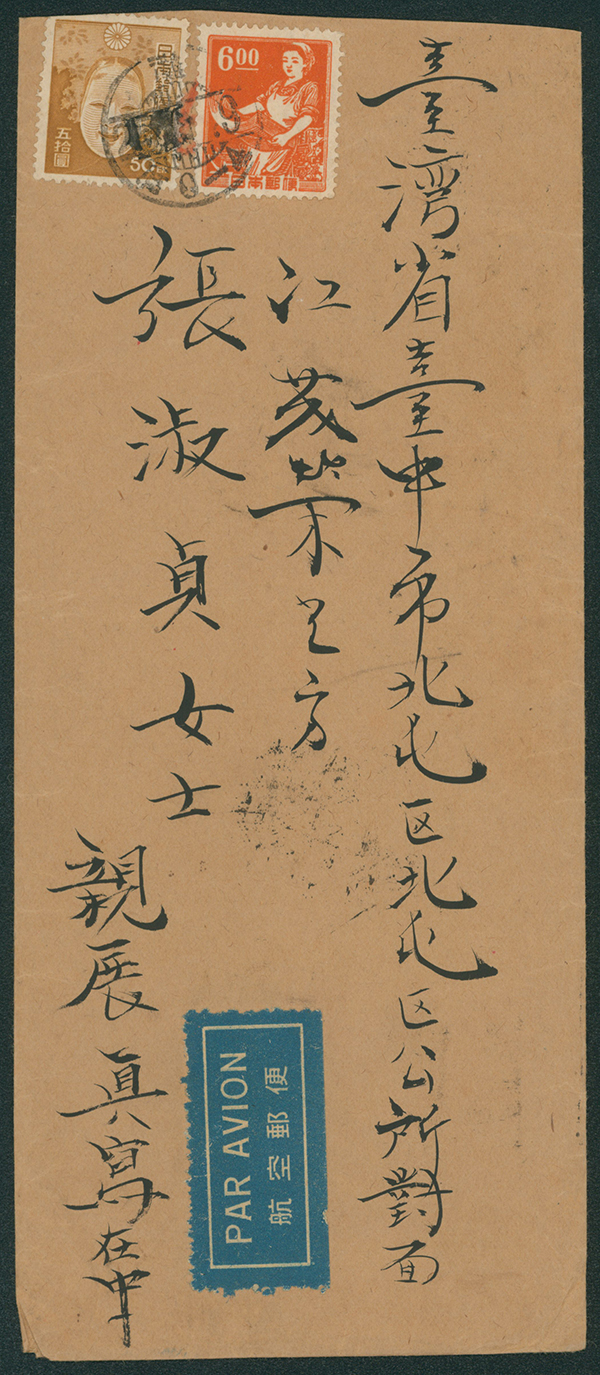 臺湾省臺中市北屯区北屯区公所對面
江茂荣之方
張淑貞女士
親展 真寫在中
6.00
日本郵便
五拾圓
50
PAR AVION
航空郵便